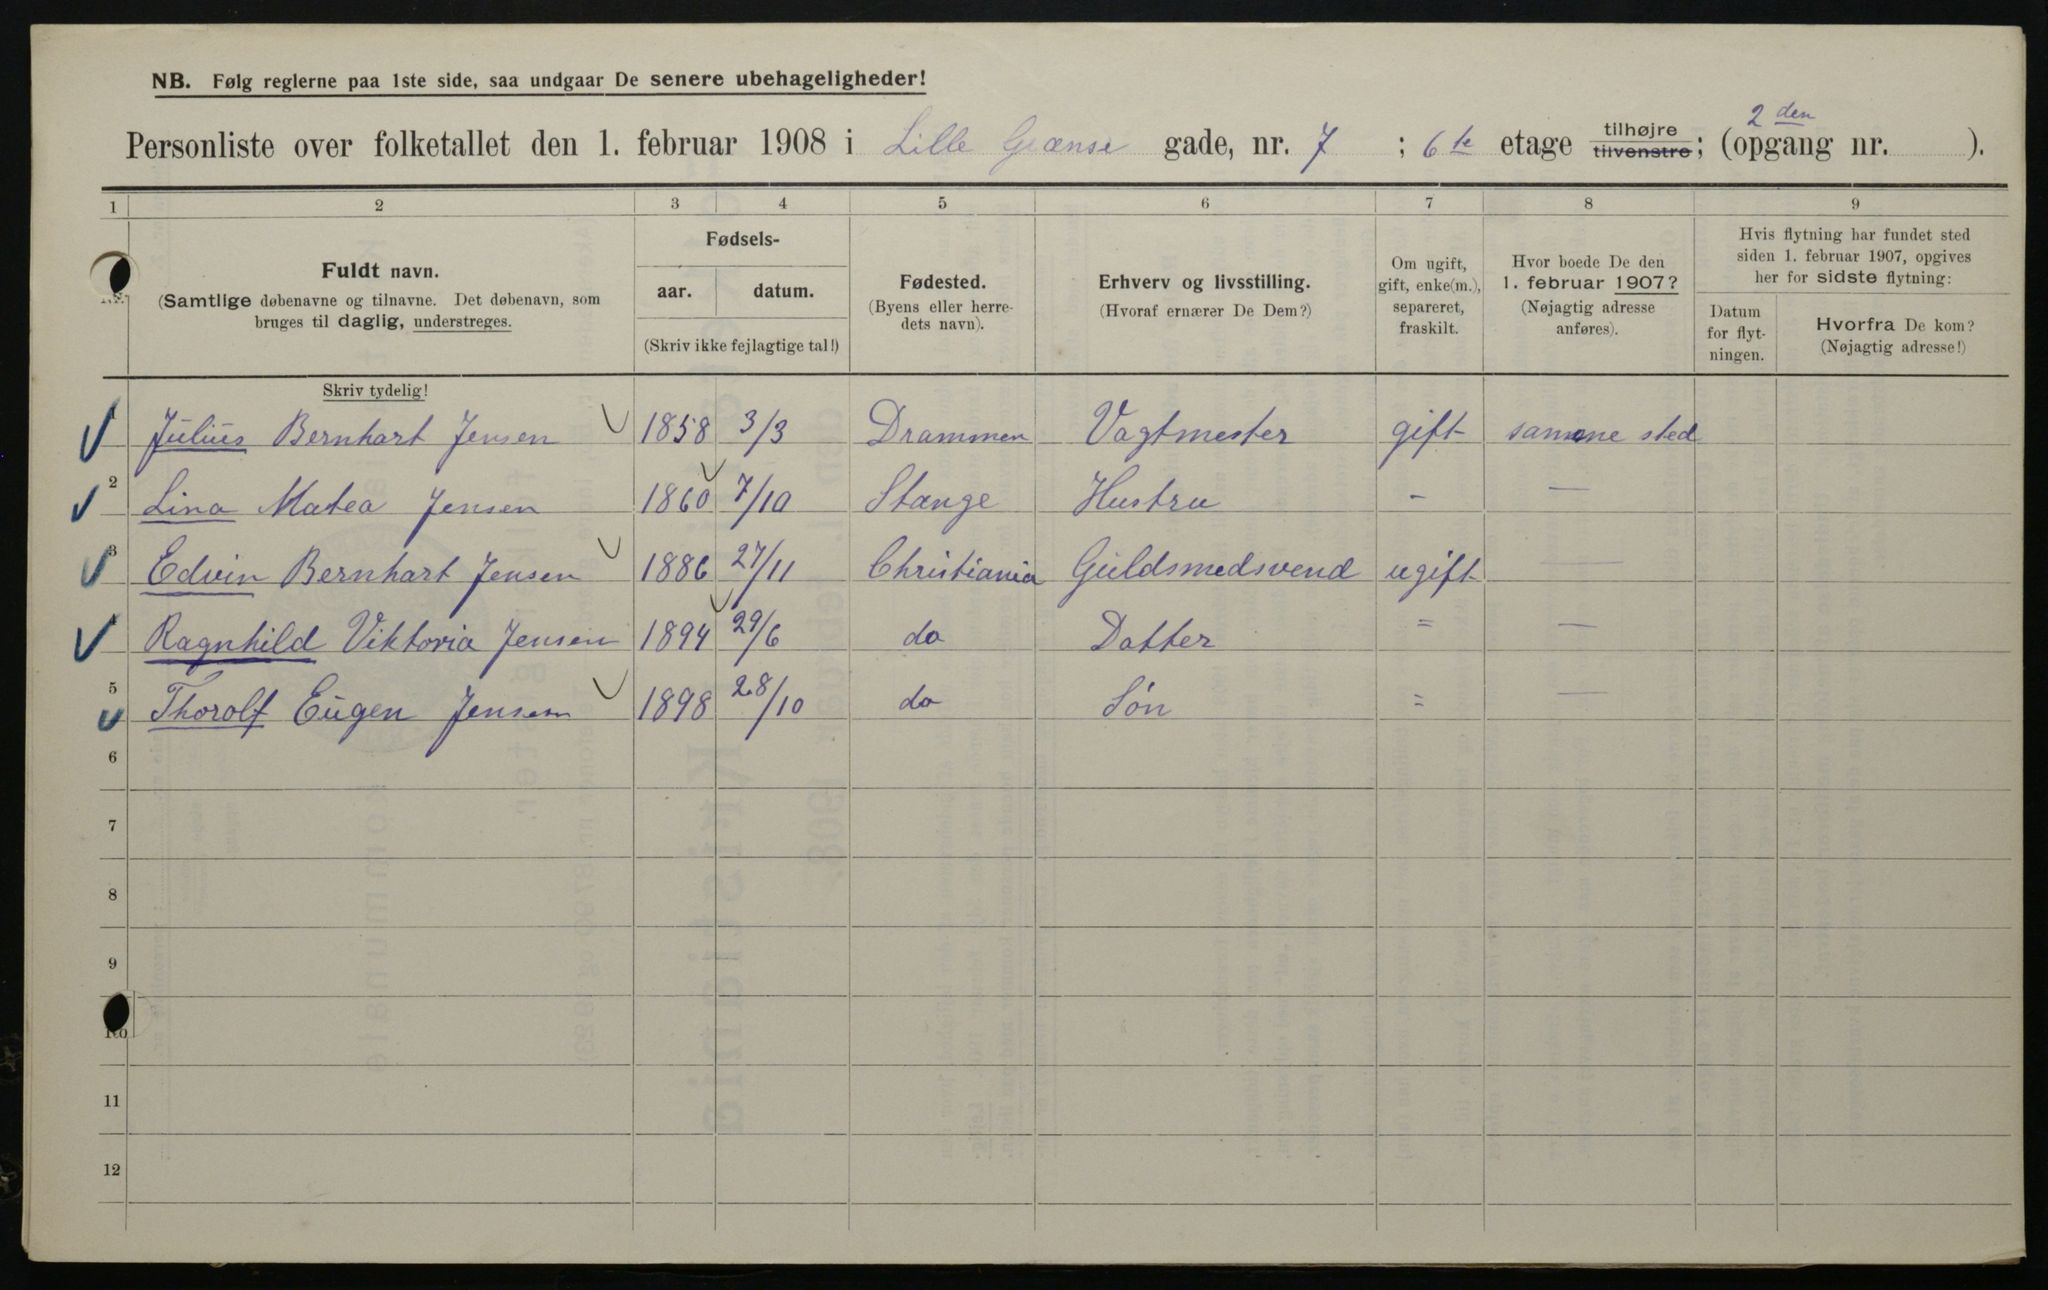 NB. Følg reglerne paa 1ste side, saa undgaar De senere ubehageligheder!
Personliste over folketallet den 1. februar 1908 i Lille Grænse gade, nr. 7 ; 6te etage tilhøjre tilvenstre; (opgang nr. 2den ).
1 2 3 4 5 6 7 8 9
Fuldt navn.
(Samtlige døbenavne og tilnavne. Det døbenavn, som
bruges til daglig, understreges.
Skriv tydelig!
Fødsels-
aar. datum.
(Skriv ikke fejlagtige tal!)
Fødested.
(Byens eller herre-
dets navn).
Erhverv og livsstilling.
(Hvoraf ernærer De Dem?)
Om ugift,
gift, enke(m.),
separeret,
fraskilt.
Hvor boede De den
1. februar 1907?
(Nøjagtig adresse
anføres).
Hvis flytning har fundet sted
siden 1. februar 1907, opgives
her for sidste flytning:
Datum
for flyt-
ningen.
Hvorfra De kom?
(Nøjagtig adresse!)
1 Julius Bernhart Jensen 1858 3/3 Drammen Vagtmester gift samme sted
2 Lina Matea Jensen 1860 7/10 Stange Hustru - —
3 Edvin Bernhart Jensen 1886 27/11 Christiania Guldsmedsvend ugift —
4 Ragnhild Viktoria Jensen 1894 29/6 do Datter = —
5 Thorolf Eugen Jensen 1898 28/10 do Søn = —
6
7
8
9
10
11
12